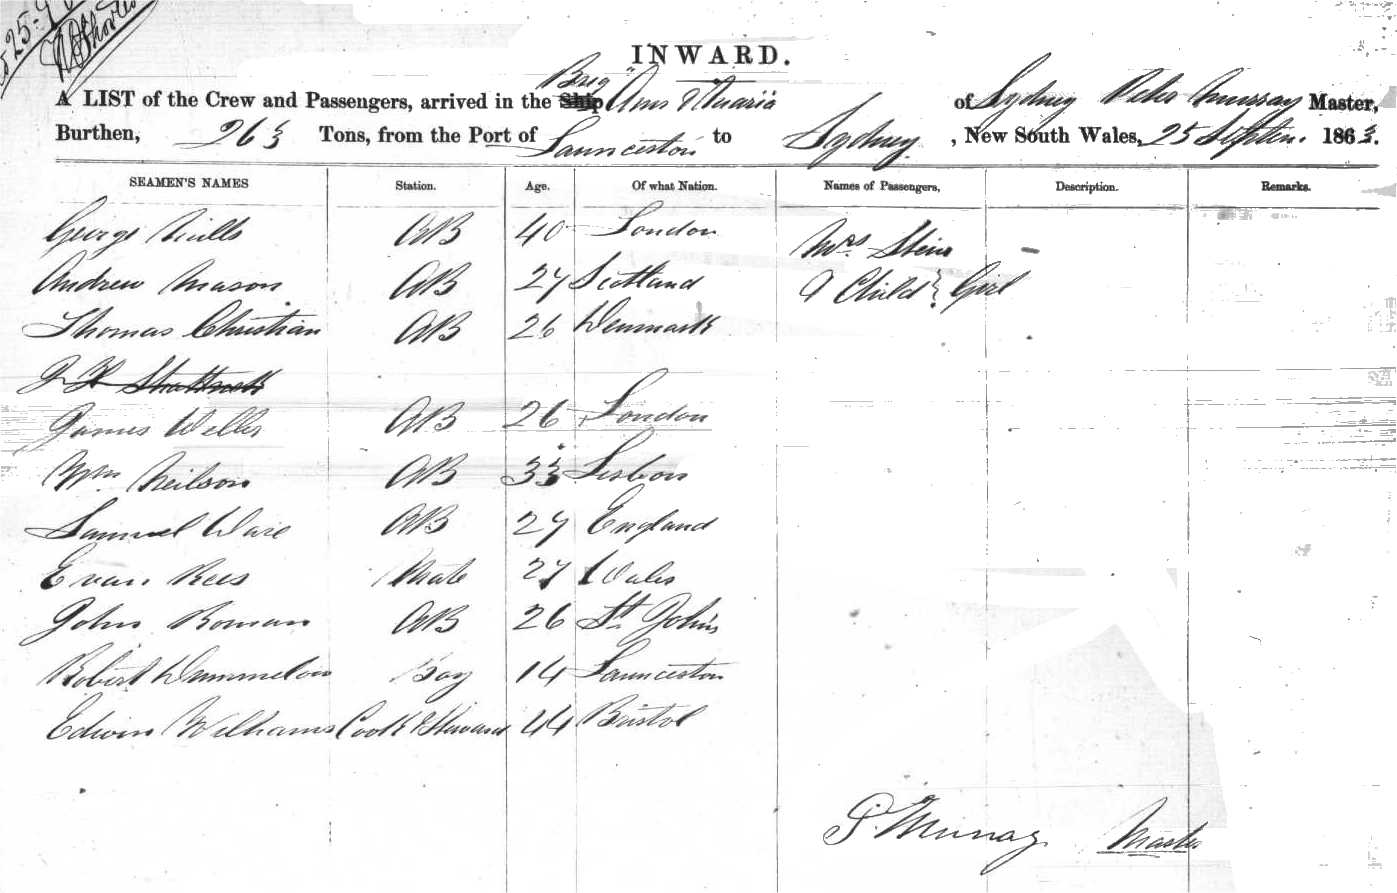 525-9
INWARD.
A LIST of the Crew and Passengers, arrived in the Ship Brig "Ann & Maria of Sydney Peter Murray Master,
Burthen, 263 Tons, from the Port of Launceston to Sydney, New South Wales, 25 Septem. 1863.
SEAMEN'S NAMES Station. Age. Of what Nation. Names of Passengers, Description. Remarks.
George Mills AB 40 London Mrs Stein -
Andrew Mason AB 27 Scotland & Child } Girl
Thomas Christian AB 26 Denmark
James Weller AB 26 London
Wm Neilson AB 33 Lisbon
Samuel Ware AB 27 England
Evan Rees Mate 27 Wales
John Roman AB 26 St John's
Robert Dummelow Boy 14 Launceston
Edwin Williams Cook & Steward 44 Bristol
P. Murray Master